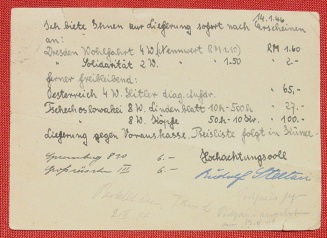 14.1.46.
Ich biete Ihnen zur Lieferung sofort nach Erscheinen
an:
Dresden Wohlfahrt 4 W. (Nennwert RM 1.10) RM 1.60
" Solidarität 2 W. " 1.50 " 2.-
ferner freibleibend:
Oesterreich 4 W. Hitler diag. Aufdr. " 65.-
Tschechoslowakei 8 W. Lindenblatt 10h-500h " 27.-
" 8 W. Köpfe 50h-10 " 100.-
Lieferung gegen Vorauskasse. Preisliste folgt in Kürze.
Hochachtungsvoll
Spremberg 6.-
Grossräschen 6.-
Rudolf